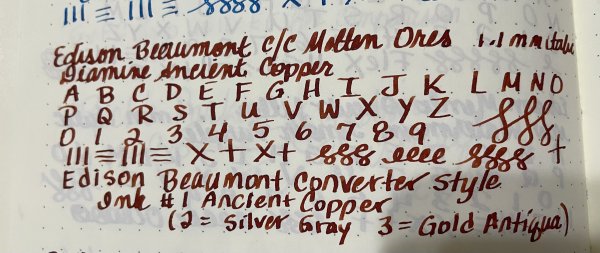 Edison Beaumont C/C Molten Ores 1.1 mm italic
Diamine Ancient Copper
A B C D E F G H I J K L M N O
P Q R S T U V W X Y Z
0 1 2 3 4 5 6 7 8 9
Edison Beaumont Converter style
Ink #1 Ancient Copper
(2 = Silver Gray 3 = Gold Antiqua)